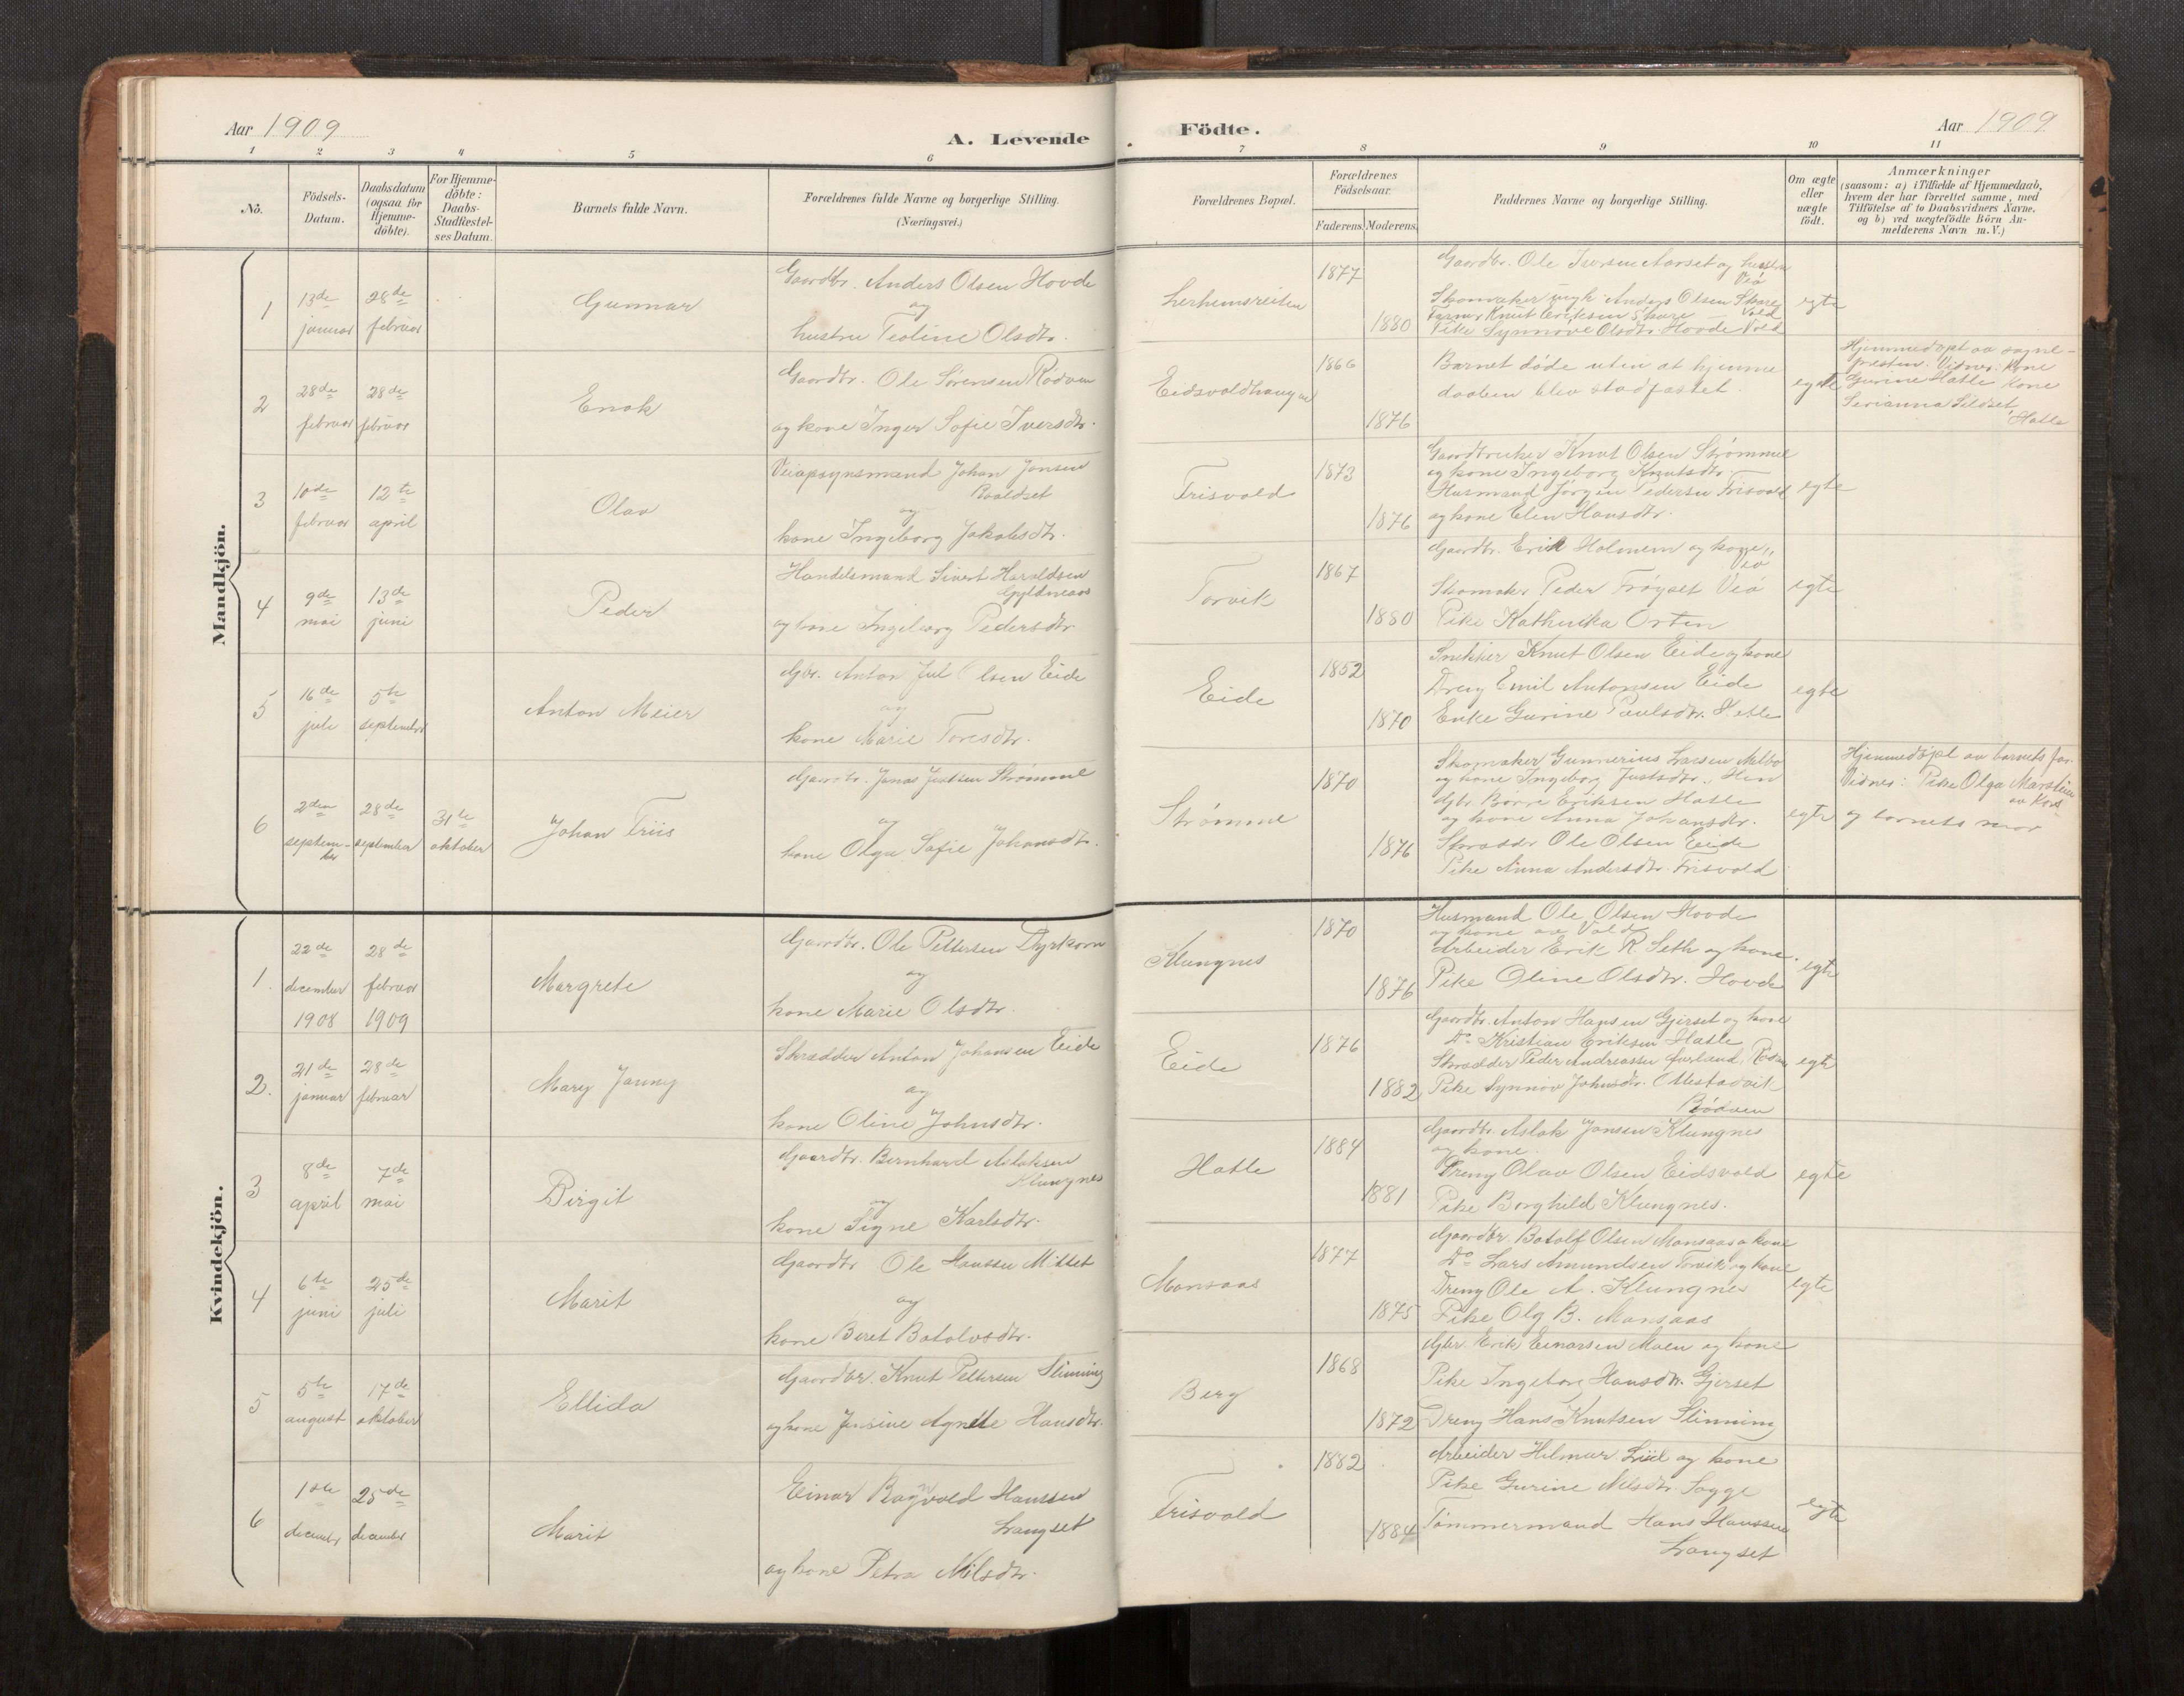 Aar 1909
A. Levende
Födte.
Aar 1909
1 2 3 4 5 6 7 8 9 10 11
No.
Födsels-Datum.
Daabsdatum (ogsaa for Hjemme-döbte).
For Hjemme-döbte: Daabs-Stadfæstel-ses Datum.
Barnets fulde Navn.
Forældrenes fulde Navne og borgerlige Stilling.
(Næringsvei.)
Forældrenes Bopæl.
Forældrenes Födselsaar.
Faderens. Moderens.
Faddernes Navne og borgerlige Stilling.
Om ægte eller uægte födt.
Anmærkninger
(saasom: a) i Tilfælde af Hjemmedaab,
hvem der har forrettet samme, med
Tilföielse af to Daabsvidners Navne,
og b) ved uægtefödte Börn An-
melderens Navn m. V.)
Mandkjön.
1
13de januar
28de februar
Gunnar
Gaardbr. Anders Olsen Hovde
og
hustru Teoline Olsdtr.
1877
1880
Gaardbr. Ole Iversen Aarset og hustru
Veø
Skomaker Anders Olsen Skare
Knut Eriksen Skare Vold
Pike Synnøve Olsdtr. Hovde Vold
egte
2
28de februar
28de februar
Enok
Gaardbr. Ole Sørensen Rødven
og kone Inger Sofie Iversdtr.
Eidsvoldhaugen
1866
1876
Barnet døde uten at hjemme
daaben blev stadfæstet.
egte
Hjemmedøpt av sogne-
presten. Vidner. Kone
Gurine Hatle kone
Serianna Sildset
Hatle
3
10de februar
12te april
Olav
Veiopsynsmand Johan Jonsen
Roaldset
og
kone Ingeborg Jakobsdtr.
Frisvold
1873
1876
Gaardbruker Knut Olsen Strømme
og kone Ingeborg Knutsdtr.
Husmand Jørgen Pedersen Frisvold
og kone Elen Hansdtr.
egte
4
9de mai
13de juni
Peder
Handelsmand Sivert Haraldsen
Gyldneaas
og kone Ingeborg Pedersdtr
Torvik
1867
1880
Gaardbr. Erik Holmem og kone
Veø
Skomaker Peder Frøyset Veø
Pike Kathinka Orten
egte
5
16de juli
5te september
Anton Meier
Gbr. Anton Jul Olsen Eide
og
kone Marie Toresdtr.
Eide
1852
1870
Snekker Knut Olsen Eide og kone
Dreng Emil Antonsen Eide
Enke Gurine Paulsdtr. Hatle
egte
6
2den september
28de september
31te oktober
Johan Friis
Gaardbr. Jonas Justsen Strømme
og
kone Olga Sofie Johansdtr.
Strømme
1870
1876
Skomaker Gunnerius Larsen Melbø
og kone Ingeborg Justsdtr. Hen
Gbr. Børre Eriksen Hatle
og kone Anna Johansdtr.
Skrædder Ole Olsen Eide
Pike Anna Andersdtr. Frisvold
egte
Hjemmedøpt av barnets far.
Vidner: Pike Olga Marstein
av Kors
og barnets mor
Kvindekjön.
1.
22de december 1908
28de februar 1909
Margrete
Gaardbr. Ole Pettersen Dyrkorn
og
kone Marie Olsdtr.
Klungnes
1870
1876
Husmand Ole Olsen Hovde
og kone av Vold
Arbeider Erik R. Seth og kone.
Pike Oline Olsdtr. Hovde
egte
2.
21de januar
28de februar
Mary Jenny
Skrædder Anton Johansen Eide
og
kone Oline Johnsdtr.
Eide
1876
1882
Gaardbr. Anton Hansen Gjerset og kone
Do Kristian Eriksen Hatle
Skrædder Peder Andreassen Rødven
Pike Synnøv Johnsdtr. Mestadvik
Rødven
egte
3
8de april
7de mai
Birgit
Gaardbr. Bernhard Aslaksen
Klungnes
og
kone Signe Karlsdtr.
Hatle
1884
1881
Gaardbr. Aslak Jonsen Klungnes
og kone.
Dreng Olav Olsen Eidsvold
Pike Borghild Klungnes.
egte
4
6te juni
25de juli
Marit
Gaardbr Ole Hanssen Mittet
og
kone Beret Botolvsdtr.
Monsaas
1877
1875
Gaardbr. Botolf Olsen Monsaas o kone
Do Lars Amundsen Torvik og kone
Dreng Ole A. Klungnes
Pike Olg B. Monsaas
egte
5
5te august
17de oktober
Ellida
Gaardbr. Knut Pettersen Slinning
og kone Jensine Agnete Hansdtr.
Berg
1868
1872
Gbr. Erik Einarsen Moen og kone
Pike Ingeborg Hansdtr. Gjerset
Dreng Hans Knutsen Slinning
6
1ste december
25de december
Marit
Einar Ragnvald Hanssen
Langset
og kone Petra Nilsdtr.
Frisvold
1882
1884
Arbeider Hilmar og kone
Pike Gurine Nelsdtr. Sogge
Tømmermand Hans Hanssen
Langset
egte